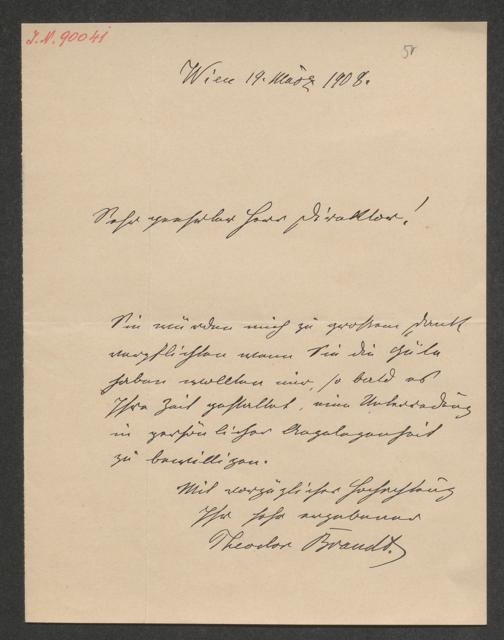 I.N. 90041
58
Wien 19. März 1908.
Sehr geehrter Herr Direktor!
Sie würden mich zu großem Dank
verpflichten wenn Sie die Güte
haben wollten mir, so bald es
Ihre Zeit gestattet, eine Unterredung
in persönlicher Angelegenheit
zu bewilligen.
Mit vorzüglicher Hochachtung
Ihr sehr ergebener
Theodor Brandt.